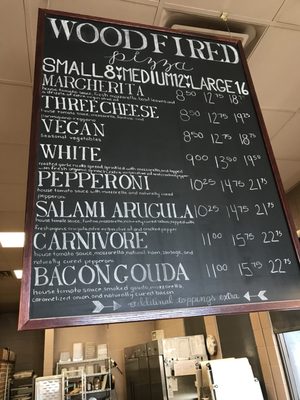 WOODFIRED
pizza
SMALL 8" MEDIUM 12" LARGE 16"
MARGHERITA 8⁵⁰ 12⁷⁵ 18⁷⁵
THREE CHEESE 8⁵⁰ 12⁷⁵ 19⁵⁰
house tomato sauce,
VEGAN 8⁵⁰ 12⁷⁵ 19⁵⁰
seasonal vegetables
WHITE 9⁰⁰ 13⁵⁰ 19⁵⁰
PEPPERONI 10²⁵ 14⁷⁵ 21⁷⁵
house tomato sauce with mozzarella and naturally cured
pepperoni
SALAMI ARUGULA 10²⁵ 14⁷⁵ 21⁷⁵
CARNIVORE 11⁰⁰ 15⁷⁵ 22⁷⁵
house tomato sauce, mozzarella, natural ham, sausage, and
naturally cured pepperoni
BACON GOUDA 11⁰⁰ 15⁷⁵ 22⁷⁵
house tomato sauce, smoked gouda, mozzarella,
caramelized onion, and naturally cured bacon
additional toppings extra